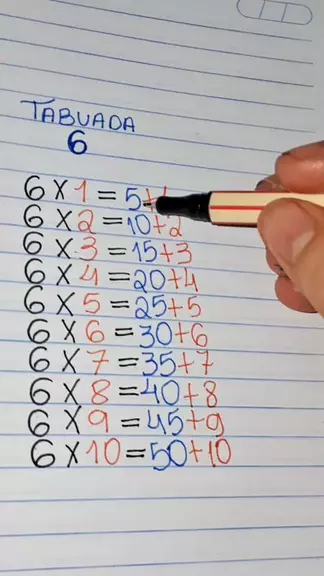 TABUADA
6
6 x 1 = 5+
6 x 2 = 10+2
6 x 3 = 15+3
6 x 4 = 20+4
6 x 5 = 25+5
6 x 6 = 30+6
6 x 7 = 35+7
6 x 8 = 40+8
6 x 9 = 45+9
6 x 10 = 50+10